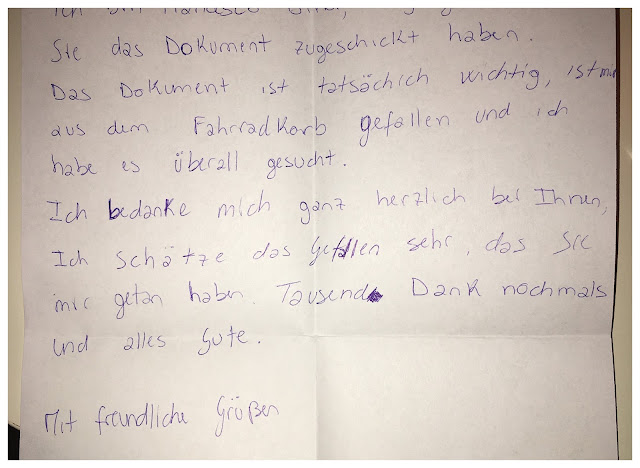 Ich bin
Sie das Dokument zugeschickt haben.
Das Dokument ist tatsächich wichtig, ist mir
aus dem Fahrradkorb gefallen und ich
habe es überall gesucht.
Ich bedanke mich ganz herzlich bei Ihnen,
Ich schätze das Gefallen sehr, das Sie
mir getan haben. Tausend Dank nochmals
und alles Gute.
Mit freundliche Grüßen